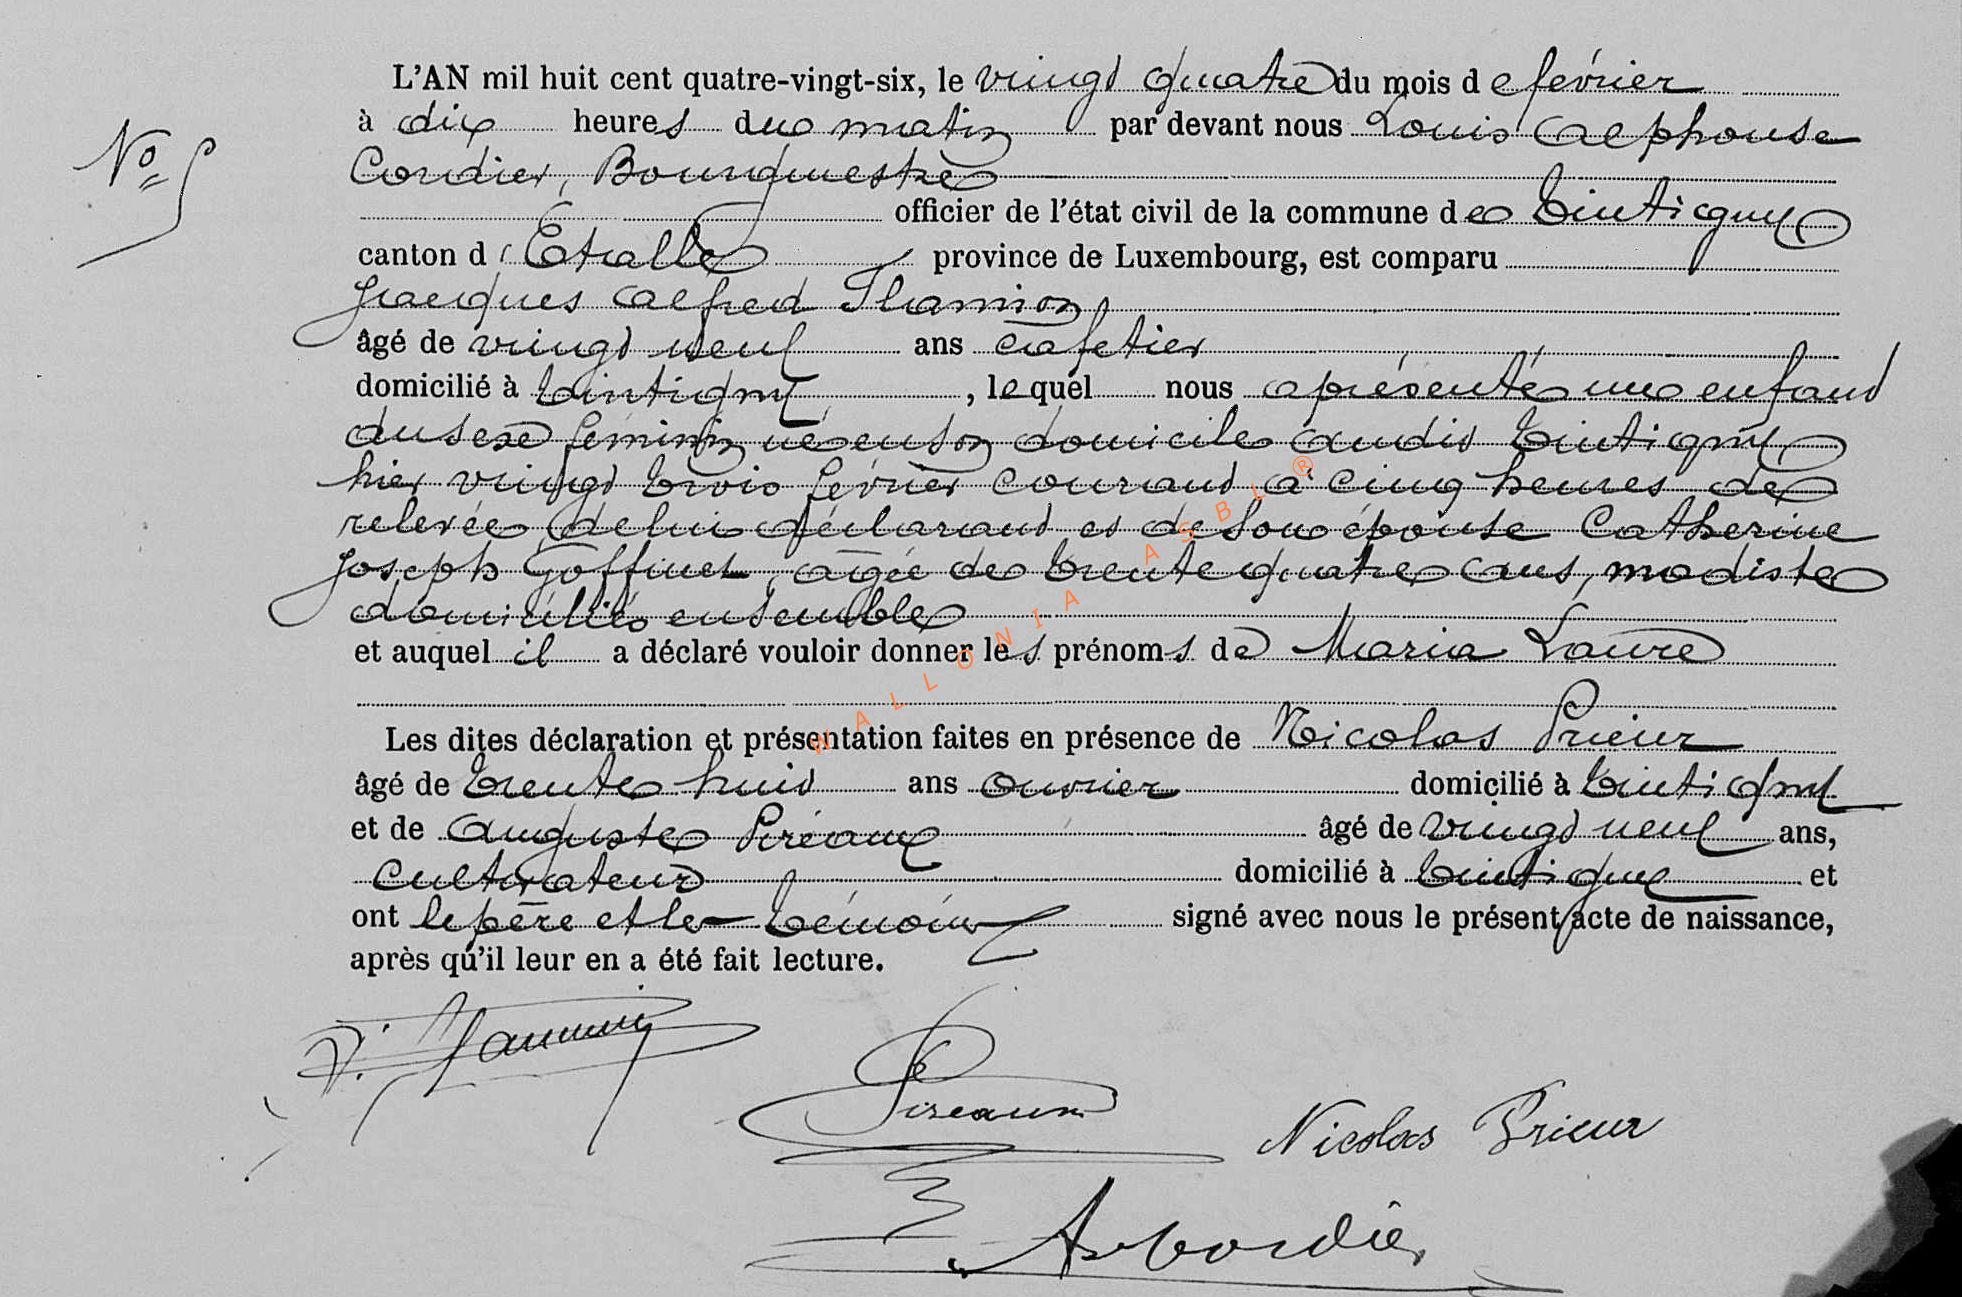 L'AN mil huit cent quatre-vingt-six, le vingt quatre du mois de février
à dix heures du matin par devant nous Louis Alphonse
Nº 5
Cordier, Bourgmestre
officier de l'état civil de la commune de Tintigny
canton d'Etalle province de Luxembourg, est comparu
Jacques Alfred Thamion
âgé de vingt neuf ans cafetier
domicilié à Tintigny, lequel nous a présenté un enfant
du sexe féminin né en son domicile audit Tintigny
hier vingt trois février courant à cinq heures de
relevée, de lui déclarant et de son épouse Catherine
Joseph Goffinet, agée de trente quatre ans, modiste
domiciliés ensemble
et auquel il a déclaré vouloir donner les prénoms de Maria Laure
Les dites déclaration et présentation faites en présence de Nicolas Prieur
âgé de trente huit ans ouvrier domicilié à Tintigny
et de Auguste Piréaux âgé de vingt neuf ans,
Cultivateur domicilié à Tintigny et
ont le père et les témoins signé avec nous le présent acte de naissance,
après qu'il leur en a été fait lecture.
Pireaux
Nicolas Prieur
WALLONIA ASBL ®